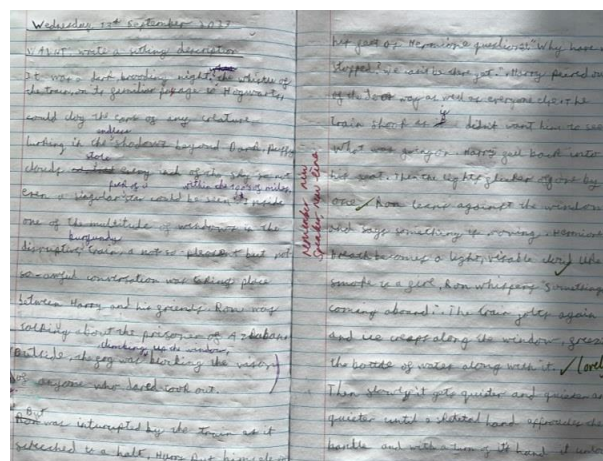 Wednesday September
L.A: HT: write a setting description
It was a dark, brooding night, the whistle of
the train, on its familiar passage to Hogwarts,
would clog the ears of any creature
endless
lurking in the shadows beyond. Dark, puffy
stole
clouds every inch of the sky so not
even a singular star could be seen. Inside
one of the multitude of windows in the
burgundy
disruptive train, a not so pleasant but not
so awful conversation was taking place
between Harry and his friends. Ron was
talking about the prisoner of Azkaban.
climbing up the window,
Outside, the fog was blocking the vision
of anyone who dared look out.
But
Ron was interrupted by the train as it
screeched to a halt. Harry put himself
Remember new
speaker, new line
his feet as Hermione questions: "Why have we
stopped? We can't be there yet." Harry peared out
of the door way as well as everyone else. The
train shook as if didn't want him to see
what was going on. Harry fell back into
his seat. Then the lights flicker off one by
one. Ron leans against the window
and says something is moving. Hermione's
breath becomes a light, visable cloud like
smoke is a girl. Ron whispers "Something's
coming aboard". The train jolts again
and ice creeps along the window, freezing
the bottle of water along with it. lovely
Then slowly it gets quieter and quieter and
quieter until a skeletal hand approaches the
handle and with a turn of its hand it